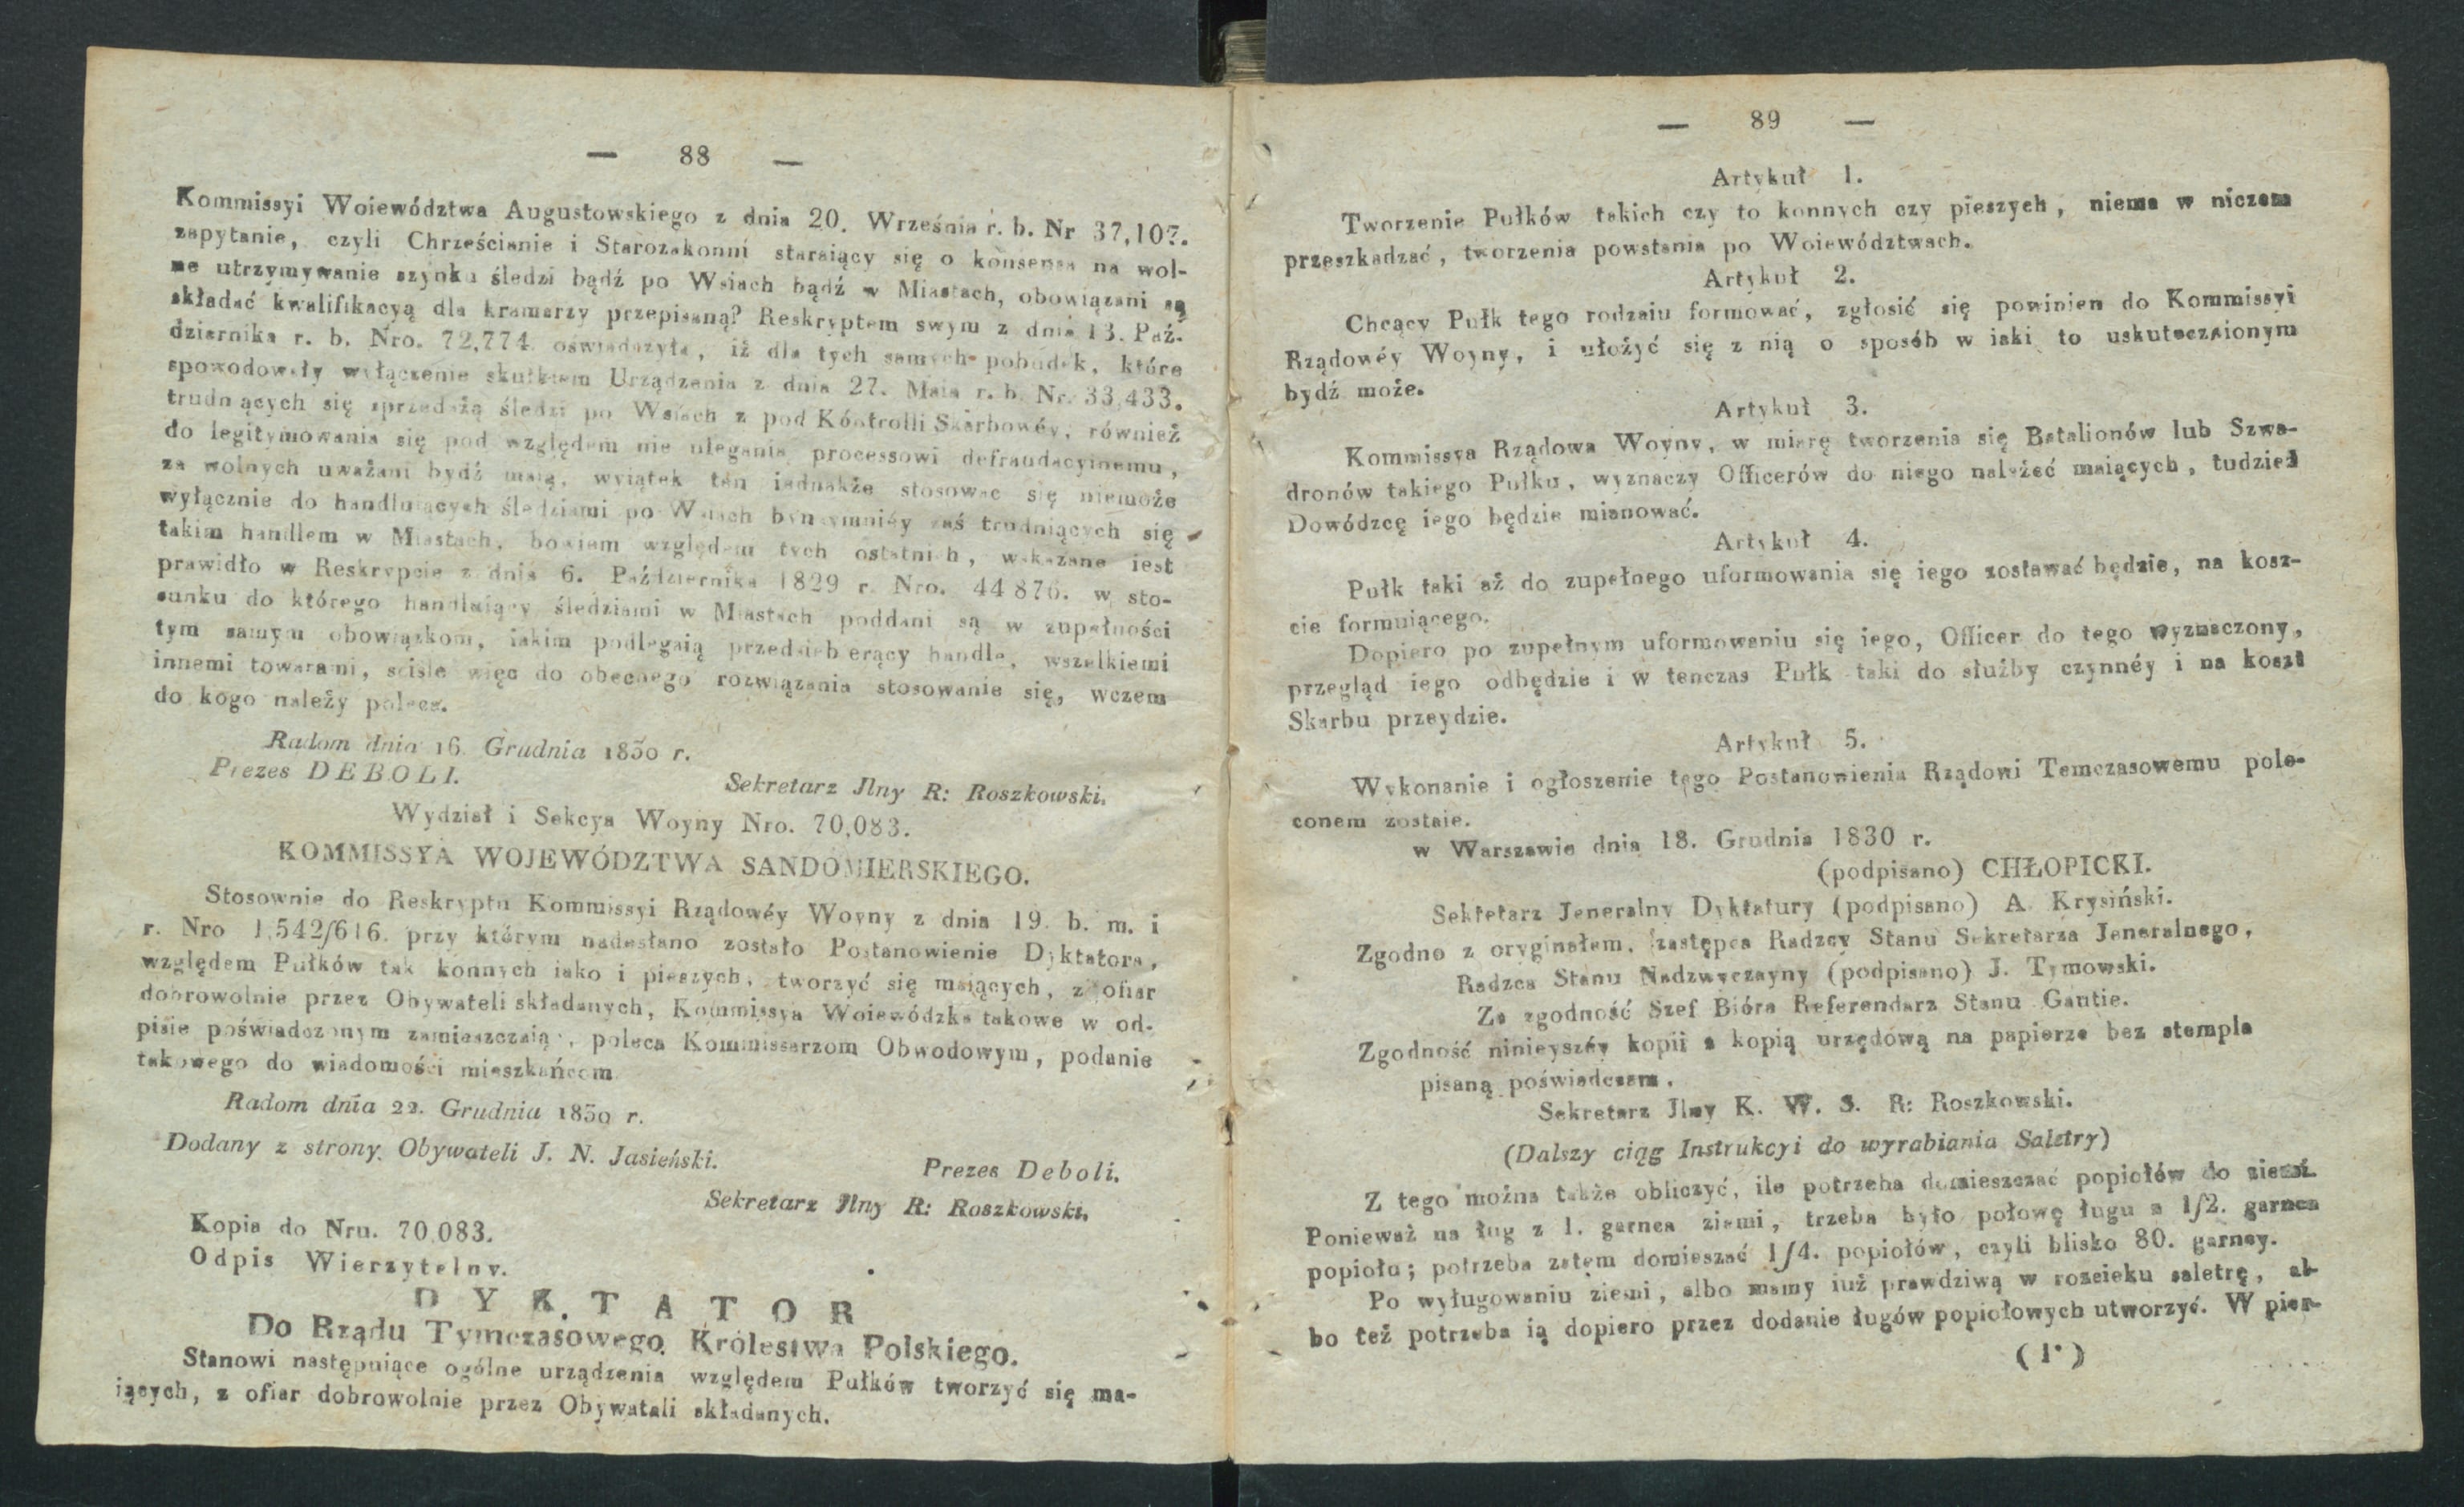 — 88 —
Kommissyi Woiewództwa Augustowskiego z dnia 20. Września r. b. Nr 37,107.
zapytanie, czyli Chrześcianie i Starozakonni staraiący się o konsensa na wol-
ne utrzymywanie szynku śledzi bądź po Wsiach bądź w Miastach, obowiązani są
składać kwalifikacyą dla kramarzy przepisaną? Reskryptem swym z dnia 13. Paź-
dziernika r. b. Nro. 72,774. oświadczyła, iż dla tych samych pobudek, które
spowodowały wyłączenie skutkiem Urządzenia z dnia 27. Maia r. b. Nr. 33,433.
trudniących się sprzedażą śledzi po Wsiach z pod Kóntrolli Skarbowéy, również
do legitymowania się pod względem nie ulegania processowi defraudacyinemu,
za wolnych uważani bydź maią, wyiątek ten iednakże stosować się niemoże
wyłącznie do handluiących śledziami po Wsiach bynaymniéy zaś trudniących się
takim handlem w Miastach, bowiem względem tych ostatnich, wskazane iest
prawidło w Reskrypcie z dnia 6. Października 1829 r. Nro. 44 876. w sto-
sunku do którego handluiący śledziami w Miastach poddani są w zupełności
tym samym obowiązkom, iakim podlegaią przedsiębierący handle, wszelkiemi
innemi towarami, scisle więc do obecnego rozwiązania stosowanie się, wczem
do kogo należy poleca.
Radom dnia 16. Grudnia 1830 r.
Prezes DEBOLI.
Sekretarz Jlny R: Roszkowski.
Wydział i Sekcya Woyny Nro. 70,083.
KOMMISSYA WOJEWÓDZTWA SANDOMIERSKIEGO.
Stosownie do Reskryptu Kommissyi Rządowéy Woyny z dnia 19. b. m. i
r. Nro 1,542/616. przy którym nadesłano zostało Postanowienie Dyktatora,
względem Pułków tak konnych iako i pieszych, tworzyć się maiących, z ofiar
dobrowolnie przez Obywateli składanych, Kommissya Woiewódzka takowe w od-
pisie poświadczonym zamieszczaiąc, poleca Kommissarzom Obwodowym, podanie
takowego do wiadomości mieszkańcom
Radom dnia 22. Grudnia 1830 r.
Dodany z strony Obywateli J. N. Jasieński.
Prezes Deboli.
Sekretarz Jlny R: Roszkowski.
Kopia do Nru. 70,083.
Odpis Wierzytelny.
DYKTATOR
Do Rządu Tymczasowego Królestwa Polskiego.
Stanowi następuiące ogólne urządzenia względem Pułków tworzyć się ma-
iących, z ofiar dobrowolnie przez Obywatali składanych.
— 89 —
Artykuł 1.
Tworzenie Pułków takich czy to konnych czy pieszych, niema w niczem
przeszkadzać, tworzenia powstania po Woiewództwach.
Artykuł 2.
Chcący Pułk tego rodzaiu formować, zgłosić się powinien do Kommissyi
Rządowéy Woyny, i ułożyć się z nią o sposób w iaki to uskutecznionym
bydź może.
Artykuł 3.
Kommissya Rządowa Woyny, w miarę tworzenia się Batalionów lub Szwa-
dronów takiego Pułku, wyznaczy Officerów do niego należeć maiących, tudzież
Dowódzcę iego będzie mianować.
Artykuł 4.
Pułk taki aż do zupełnego uformowania się iego zostawać będzie, na kosz-
cie formuiącego.
Dopiero po zupełnym uformowaniu się iego, Officer do tego wyznaczony,
przegląd iego odbędzie i w tenczas Pułk taki do służby czynnéy i na koszt
Skarbu przeydzie.
Artykuł 5.
Wykonanie i ogłoszenie tego Postanowienia Rządowi Temczasowemu pole-
conem zostaie.
w Warszawie dnia 18. Grudnia 1830 r.
(podpisano) CHŁOPICKI.
Sekretarz Jeneralny Dyktatury (podpisano) A. Krysiński.
Zgodno z oryginałem, zastępca Radzcy Stanu Sekretarza Jeneralnego,
Radzca Stanu Nadzwyczayny (podpisano) J. Tymowski.
Za zgodność Szef Bióra Referendarz Stanu Gautie.
Zgodność ninieyszéy kopii z kopią urzędową na papierze bez stempla
pisaną poświadczam.
Sekretarz Jlny K. W. S. R: Roszkowski.
(Dalszy ciąg Instrukcyi do wyrabiania Saletry)
Z tego można także obliczyć, ile potrzeba domieszczać popiołów do ziemi.
Ponieważ na ług z 1. garnca ziemi, trzeba było połowę ługu z 1/2. garnca
popiołu; potrzeba zatem domieszać 1/4. popiołów, czyli blisko 80. garncy.
Po wyługowaniu ziemi, albo mamy iuż prawdziwą w rozcieku saletrę, al-
bo też potrzeba ią dopiero przez dodanie ługów popiołowych utworzyć. W pier-
(1*)